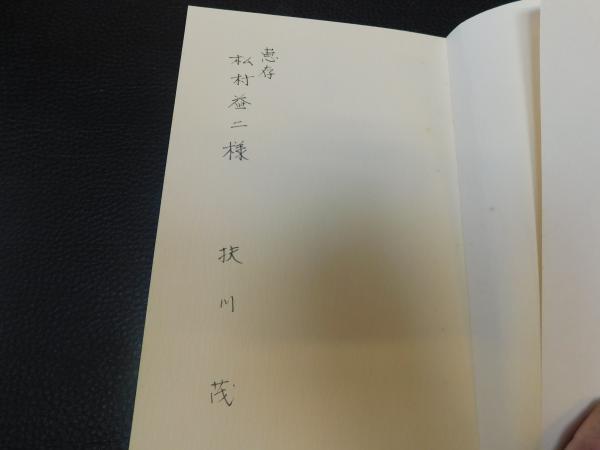 恵存
松村益二様
扶川茂